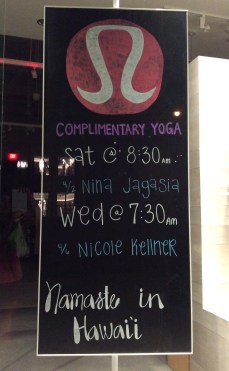 COMPLIMENTARY YOGA
Sat @ 8:30am
4/2 Nina Jagasia
Wed @ 7:30AM
4/6 Nicole Kellner
Namaste in
Hawai'i